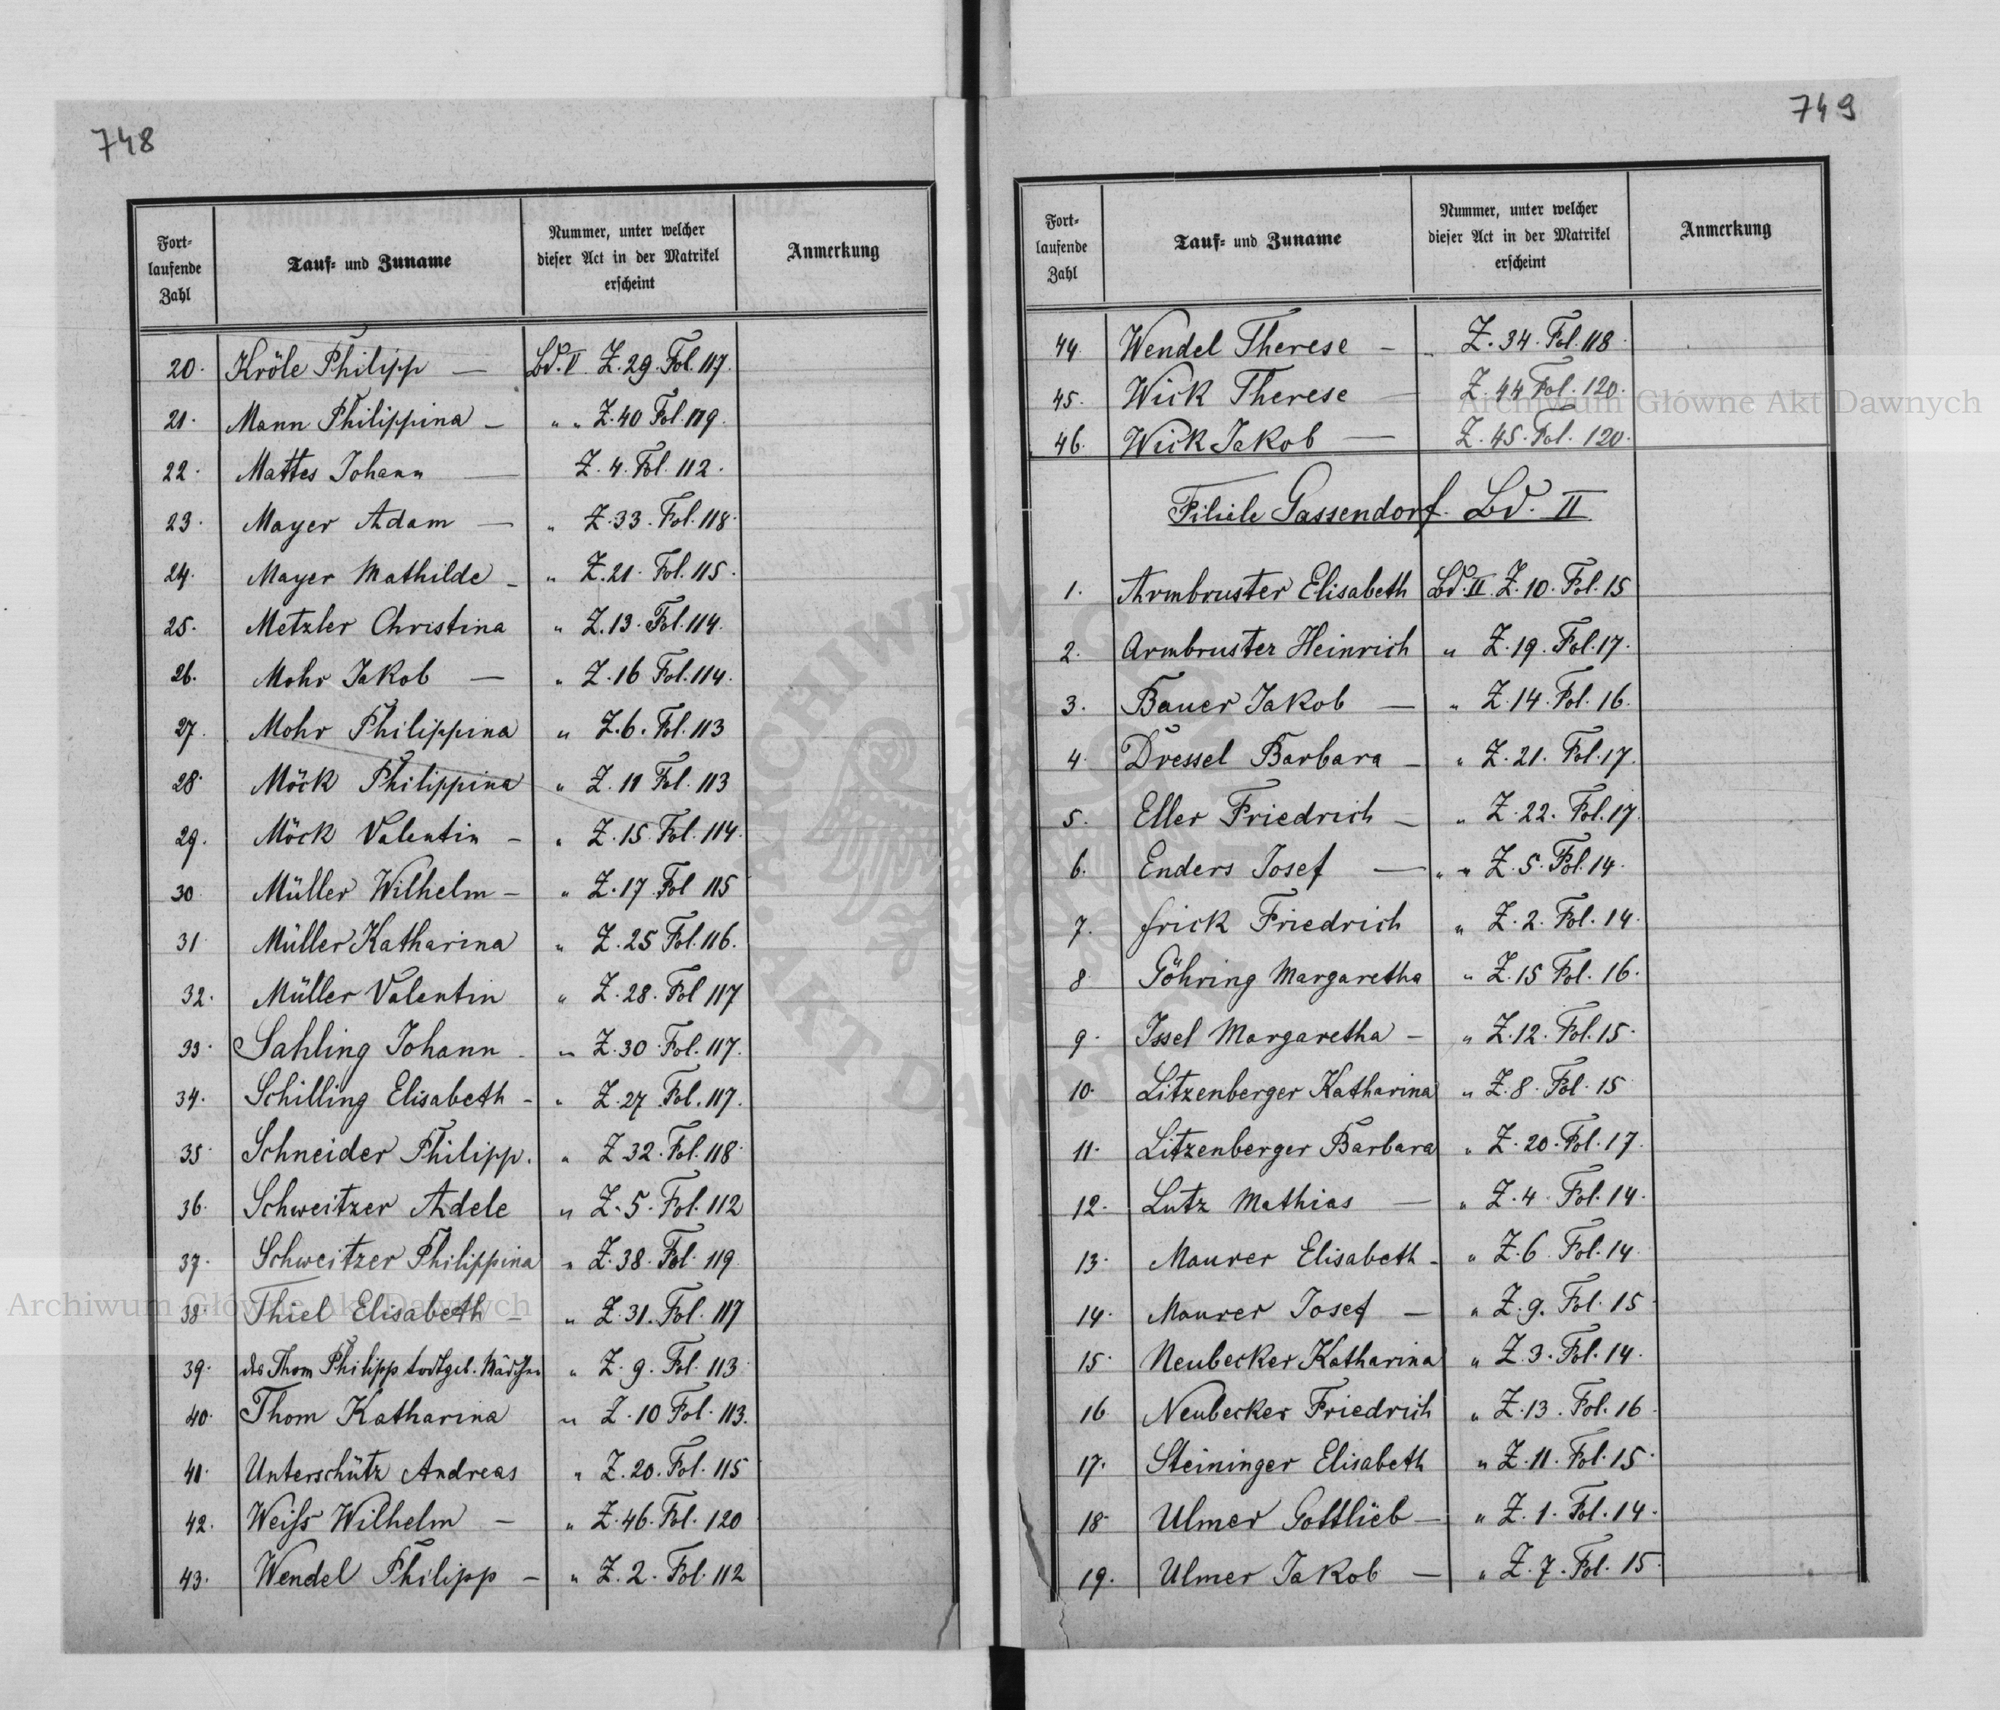 748
Fort-
laufende
Zahl
Tauf- und Zuname
Nummer, unter welcher
dieser Act in der Matrikel
erscheint
Anmerkung
20. Kröle Philipp — Bd. II Z. 29. Fol. 117.
21. Mann Philippina — " " Z. 40 Fol. 119.
22. Mattes Johann — Z. 4. Fol. 112.
23. Mayer Adam — " Z. 33. Fol. 118.
24. Mayer Mathilde — " Z. 21. Fol. 115.
25. Metzler Christina " Z. 13. Fol. 114.
26. Mohr Jakob — " Z. 16 Fol. 114.
27. Mohr Philippina " Z. 6. Fol. 113
28. Möck Philippina " Z. 11 Fol. 113
29. Möck Valentin — " Z. 15. Fol. 114.
30 Müller Wilhelm — " Z. 17 Fol 115
31. Müller Katharina " Z. 25 Fol. 116.
32. Müller Valentin " Z. 28. Fol 117
33. Sahling Johann — " Z. 30. Fol. 117.
34. Schilling Elisabeth — " Z. 27. Fol. 117.
35. Schneider Philipp. " Z. 32. Fol. 118.
36. Schweitzer Adele " Z. 5. Fol. 112
37. Schweitzer Philippina " Z. 38. Fol. 119
38. Thiel Elisabeth — " Z. 31. Fol. 117
39. des Thom Philipp todtgeb. Mädchen " Z. 9. Fol. 113.
40. Thom Katharina " Z. 10 Fol. 113.
41. Unterschütz Andreas " Z. 20. Fol. 115
42. Weiss Wilhelm — " Z. 46. Fol. 120
43. Wendel Philipp — " Z. 2. Fol. 112
749
Fort-
laufende
Zahl
Tauf- und Zuname
Nummer, unter welcher
dieser Act in der Matrikel
erscheint
Anmerkung
44. Wendel Therese — " Z. 34. Fol. 118.
45. Wick Therese — Z. 44 Fol. 120.
46. Wick Jakob — Z. 45. Fol. 120.
Filiale Gassendorf. Bd. II
1. Armbruster Elisabeth Bd. II. Z. 10. Fol. 15
2. Armbruster Heinrich " Z. 19. Fol. 17.
3. Bauer Jakob — " Z. 14. Fol. 16.
4. Dressel Barbara — " Z. 21. Fol. 17.
5. Eller Friedrich — " Z. 22. Fol. 17.
6. Enders Josef — " " Z. 5. Fol. 14.
7. Frick Friedrich " Z. 2. Fol. 14.
8. Göhring Margaretha " Z. 15 Fol. 16.
9. Issel Margaretha — " Z. 12. Fol. 15.
10. Litzenberger Katharina " Z. 8. Fol. 15
11. Litzenberger Barbara " Z. 20. Fol. 17.
12. Lutz Mathias — " Z. 4. Fol. 14.
13. Maurer Elisabeth — " Z. 6 Fol. 14.
14. Maurer Josef — " Z. 9. Fol. 15.
15. Neubecker Katharina " Z. 3. Fol. 14.
16. Neubecker Friedrich " Z. 13. Fol. 16.
17. Steininger Elisabeth " Z. 11. Fol. 15.
18. Ulmer Gottlieb — " Z. 1. Fol. 14.
19. Ulmer Jakob — " Z. 7. Fol. 15.
Archiwum Główne Akt Dawnych
Archiwum Główne Akt Dawnych